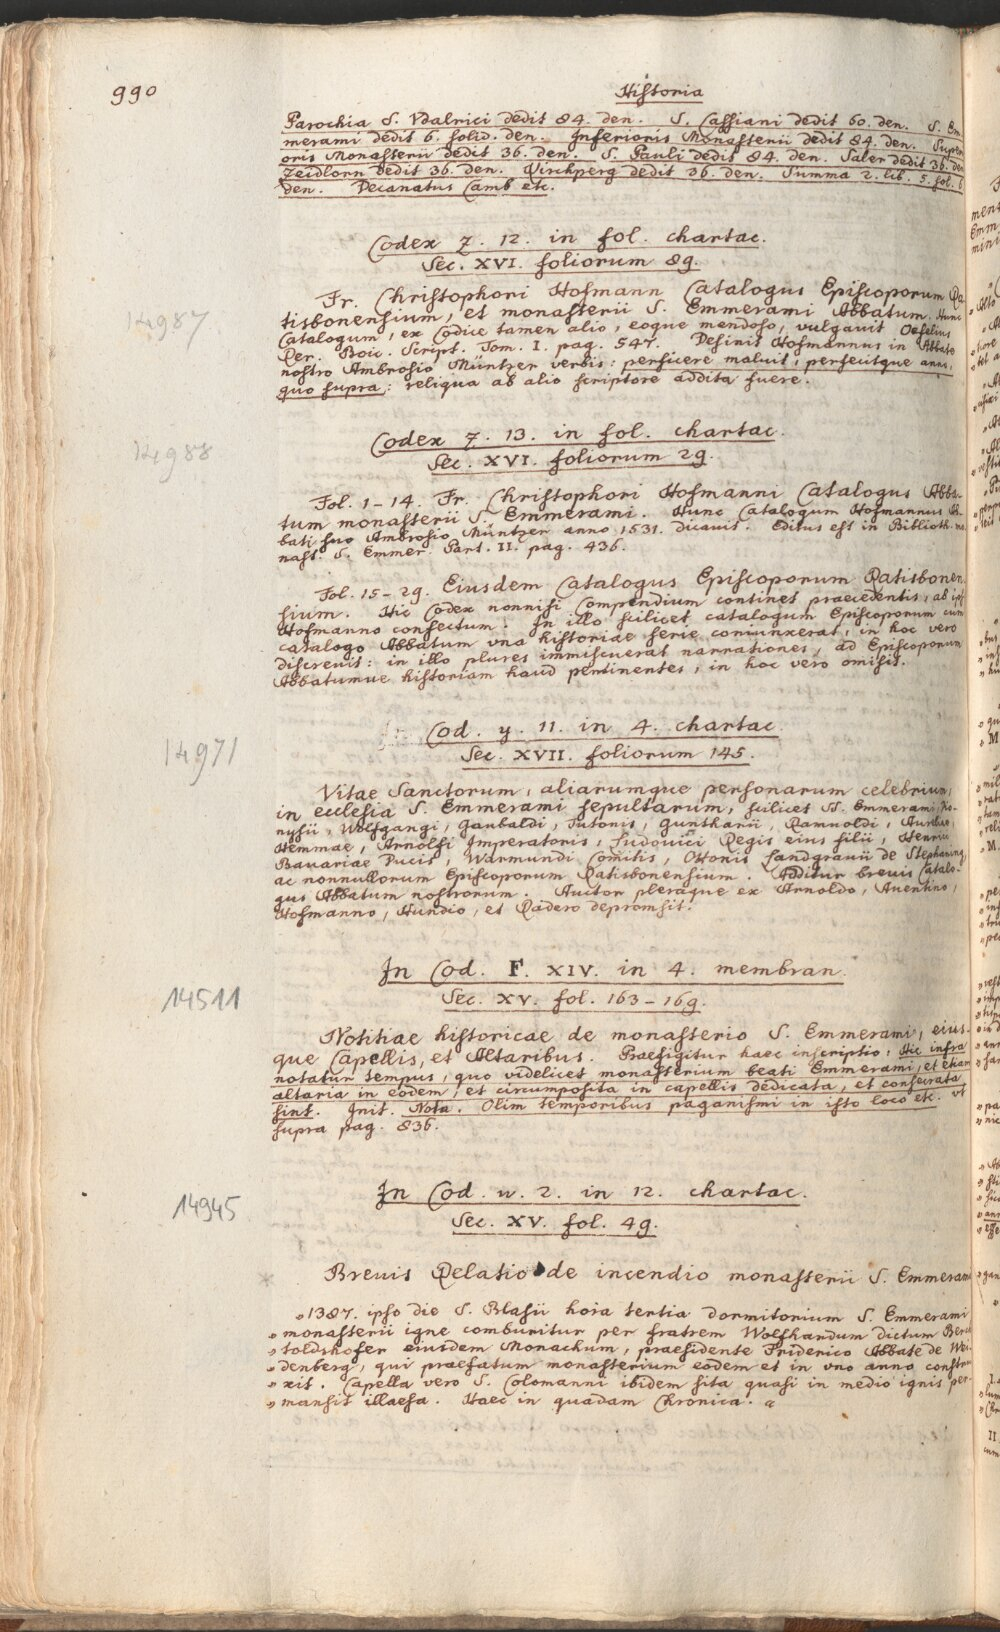 990
Historia
Parochia S. Vdalrici dedit 84. den. S. Cassiani dedit 60. den. S. Em-
merami dedit 6. solid. den. Inferioris Monasterii dedit 84. den. Superi
oris Monasterii dedit 36. den. S. Pauli dedit 84. den. Saler dedit 36. den
Zeidlorn dedit 36. den. Kirchperg dedit 36. den. Summa 2. lib. 5. sol. 6
den. Decanatus Camb etc.
Codex 7. 12. in fol. chartac.
Sec. XVI. foliorum 89.
14987
Fr. Christophori Hofmann Catalogus Episcoporum Ra-
tisbonensium, et monasterii S. Emmerami Abbatum. Hunc
Catalogum, ex Codice tamen alio, eoque mendoso, vulgauit Oefelius
Rer. Boic. Script. Tom. I. pag. 547. Desinit Hofmannus in Abbate
nostro Ambrosio Müntzer verbis: perficere maluit, perfecitque anno,
quo supra: reliqua ab alio scriptore addita fuere.
14988
Codex 7. 13. in fol. chartac.
Sec. XVI. foliorum 29.
Fol. 1-14. Fr. Christophori Hofmanni Catalogus Abba-
tum monasterii S. Emmerami. Hunc Catalogum Hofmannus Ab-
bati suo Ambrosio Müntzer anno 1531. dicauit. Editus est in Biblioth. no
nast. S. Emmer. Part. II. pag. 436.
Fol. 15-29. Eiusdem Catalogus Episcoporum Ratisbonen
sium. Hic Codex nonnisi Compendium continet praecedentis, ab ipso
Hofmanno confectum. In illo scilicet catalogum Episcoporum cum
catalogo Abbatum vna historiae serie coniunxerat, in hoc vero
discreuit: in illo plures immiscuerat narrationes, ad Episcoporum
Abbatumue historiam haud pertinentes, in hoc vero omisit.
14971
Cod. y. 11. in 4. chartac.
Sec. XVII. foliorum 145.
Vitae Sanctorum, aliarumque personarum celebrium,
in ecclesia S. Emmerami sepultarum, scilicet SS. Emmerami, Dio-
nysii, Wolfgangi, Gaubaldi, Tutonis, Guntharii, Ramuoldi, Aureliae,
Hemmae, Arnolfi Imperatoris, Ludouici Regis eius filii, Henrici
Bauariae Ducis, Warmundi Comitis, Ottonis Landgrauii de Stephaning
ac nonnullorum Episcoporum Ratisbonensium. Additur breuis Catalo-
gus Abbatum nostrorum. Auctor pleraque ex Arnoldo, Auentino,
Hofmanno, Hundio, et Radero depromsit.
14511
In Cod. F. XIV. in 4. membran.
Sec. XV. fol. 163-169.
Notitiae historicae de monasterio S. Emmerami, eius-
que Capellis, et Altaribus. Praefigitur haec inscriptio: Hic infra
notatur tempus, quo videlicet monasterium beati Emmerami, et etiam
altaria in eodem, et circumposita in capellis dedicata, et consecrata
sint. Init. Nota. Olim temporibus paganismi in isto loco etc. vt
supra pag. 836.
14945
In Cod. u. 2. in 12. chartac.
Sec. XV. fol. 49.
Breuis Relatio de incendio monasterii S. Emmerami
„1387. ipso die S. Blasii hora tertia dormitorium S. Emmerami
„monasterii igne comburitur per fratrem Wolfhardum dictum Berch
„toldshofer eiusdem Monachum, praesidente Friderico Abbate de Wei-
„denberg, qui praefatum monasterium eodem et in vno anno constru
„xit. Capella vero S. Colomanni ibidem sita quasi in medio ignis per-
„mansit illaesa. Haec in quadam Chronica.